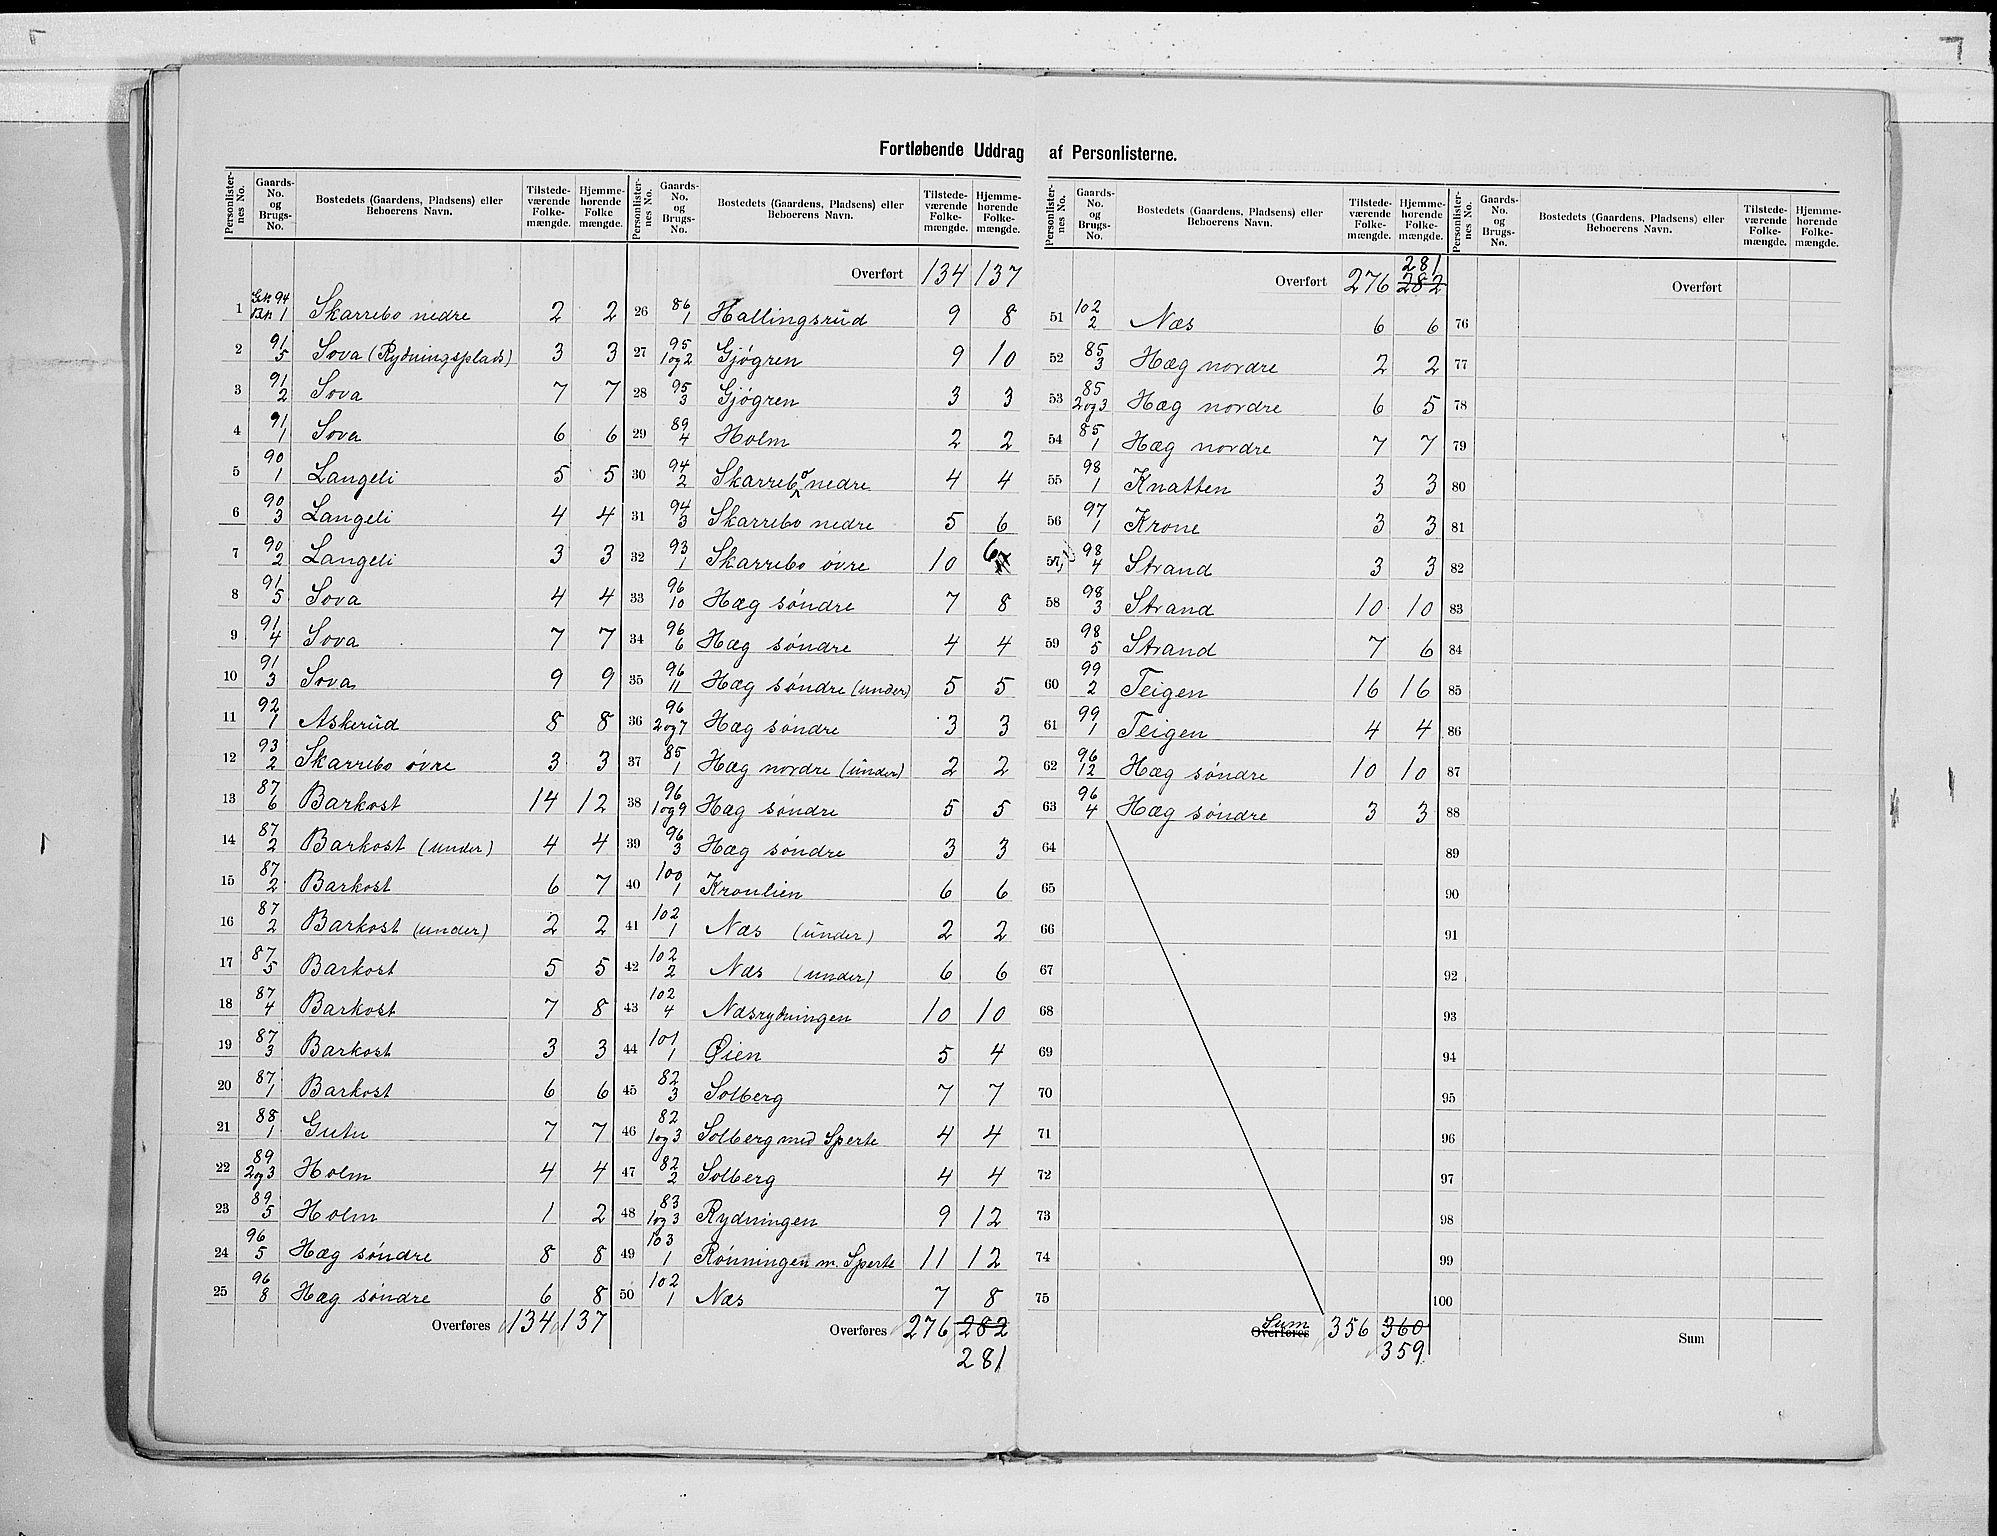 Fortløbende Uddrag af Personlisterne.
Personlister-nes No. | Gaards-No. og Brugs-No. | Bostedets (Gaardens, Pladsens) eller Beboerens Navn. | Tilstede-værende Folke-mængde. | Hjemme-hørende Folke mængde.
1 | Gn. 94 Bn. 1 | Skarrebo nedre | 2 | 2
2 | 91 5 | Sova (Rydningsplads) | 3 | 3
3 | 91 2 | Sova | 7 | 7
4 | 91 1 | Sova | 6 | 6
5 | 90 1 | Langeli | 5 | 5
6 | 90 3 | Langeli | 4 | 4
7 | 90 2 | Langeli | 3 | 3
8 | 91 5 | Sova | 4 | 4
9 | 91 4 | Sova | 7 | 7
10 | 91 3 | Sova | 9 | 9
11 | 92 1 | Askerud | 8 | 8
12 | 93 2 | Skarrebo øvre | 3 | 3
13 | 87 6 | Barkost | 14 | 12
14 | 87 2 | Barkost (under) | 4 | 4
15 | 87 2 | Barkost | 6 | 7
16 | 87 2 | Barkost (under) | 2 | 2
17 | 87 5 | Barkost | 5 | 5
18 | 87 4 | Barkost | 7 | 8
19 | 87 3 | Barkost | 3 | 3
20 | 87 1 | Barkost | 6 | 6
21 | 88 1 | Gutu | 7 | 7
22 | 89 2og3 | Holm | 4 | 4
23 | 89 5 | Holm | 1 | 2
24 | 96 5 | Hæg søndre | 8 | 8
25 | 96 8 | Hæg søndre | 6 | 8
Overføres 134 137
Personlister-nes No. | Gaards-No. og Brugs-No. | Bostedets (Gaardens, Pladsens) eller Beboerens Navn. | Tilstede-værende Folke-mængde. | Hjemme-hørende Folke-mængde.
Overført 134 137
26 | 86 1 | Hallingsrud | 9 | 8
27 | 95 1og2 | Gjøgren | 9 | 10
28 | 95 3 | Gjøgren | 3 | 3
29 | 89 4 | Holm | 2 | 2
30 | 94 2 | Skarrebo nedre | 4 | 4
31 | 94 3 | Skarrebo nedre | 5 | 6
32 | 93 1 | Skarrebo øvre | 10 | 6
33 | 96 10 | Hæg søndre | 7 | 8
34 | 96 6 | Hæg søndre | 4 | 4
35 | 96 11 | Hæg søndre (under) | 5 | 5
36 | 96 2og7 | Hæg søndre | 3 | 3
37 | 85 1 | Hæg nordre (under) | 2 | 2
38 | 96 1og9 | Hæg søndre | 5 | 5
39 | 96 3 | Hæg søndre | 3 | 3
40 | 100 1 | Kronlien | 6 | 6
41 | 102 1 | Næs (under) | 2 | 2
42 | 102 2 | Næs (under) | 6 | 6
43 | 102 4 | Næsrydningen | 10 | 10
44 | 101 1 | Øien | 5 | 4
45 | 82 3 | Solberg | 7 | 7
46 | 82 1og3 | Solberg med Sperte | 4 | 4
47 | 82 2 | Solberg | 4 | 4
48 | 83 1og3 | Rydningen | 9 | 12
49 | 103 1 | Rønningen m. Sperte | 11 | 12
50 | 102 1 | Næs | 7 | 8
Overføres 276 282
281
Personlister-nes No. | Gaards-No. og Brugs-No. | Bostedets (Gaardens, Pladsens) eller Beboerens Navn. | Tilstede-værende Folke-mængde. | Hjemme-hørende Folke-mængde.
281
Overført 276 282
51 | 102 2 | Næs | 6 | 6
52 | 85 3 | Hæg nordre | 2 | 2
53 | 85 2og3 | Hæg nordre | 6 | 5
54 | 85 1 | Hæg nordre | 7 | 7
55 | 98 1 | Knatten | 3 | 3
56 | 97 1 | Krone | 3 | 3
57 | 98 4 | Strand | 3 | 3
58 | 98 3 | Strand | 10 | 10
59 | 98 5 | Strand | 7 | 6
60 | 99 2 | Teigen | 16 | 16
61 | 99 1 | Teigen | 4 | 4
62 | 96 12 | Hæg søndre | 10 | 10
63 | 96 4 | Hæg søndre | 3 | 3
64
65
66
67
68
69
70
71
72
73
74
75
Sum
Overføres 356 360
359
Personlister-nes No. | Gaards-No. og Brugs-No. | Bostedets (Gaardens, Pladsens) eller Beboerens Navn. | Tilstede-værende Folke-mængde. | Hjemme-hørende Folke-mængde.
Overført
76
77
78
79
80
81
82
83
84
85
86
87
88
89
90
91
92
93
94
95
96
97
98
99
100
Sum